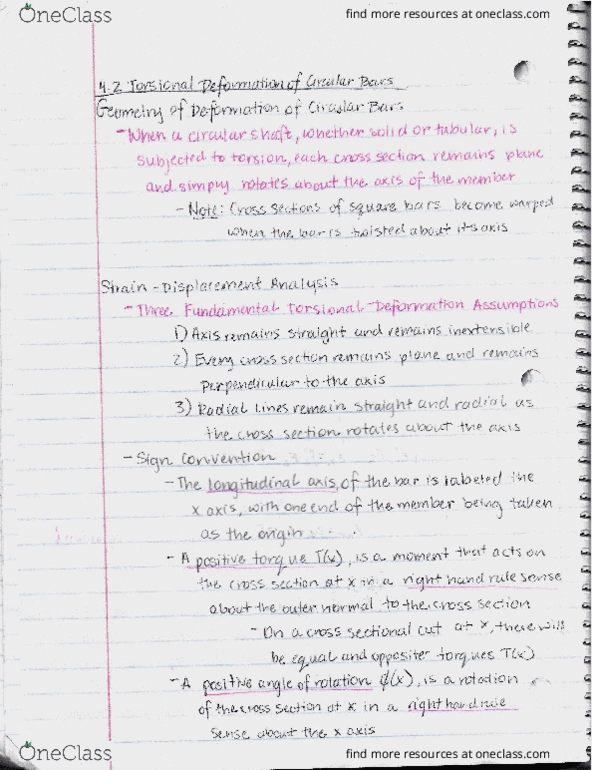 OneClass
find more resources at oneclass.com
4.2 Torsional Deformation of Circular Bars
Geometry of Deformation of Circular Bars
- When a circular shaft, whether solid or tubular, is
subjected to torsion, each cross section remains plane
and simply rotates about the axis of the member
- Note: Cross sections of square bars become warped
when the bar is twisted about its axis
Strain - Displacement Analysis
- Three Fundamental Torsional-Deformation Assumptions
1) Axis remains straight and remains inextensible
2) Every cross section remains plane and remains
perpendicular to the axis
3) Radial lines remain straight and radial as
the cross section rotates about the axis
- Sign Convention
- The longitudinal axis, of the bar is labeled the
x axis, with one end of the member being taken
as the origin
- A positive torque T(x), is a moment that acts on
the cross section at x in a right hand rule sense
about the outer normal to the cross section
- On a cross sectional cut at x, there will
be equal and opposite torques T(x)
- A positive angle of rotation ϕ(x), is a rotation
of the cross section at x in a right hand rule
sense about the x axis
OneClass
find more resources at oneclass.com